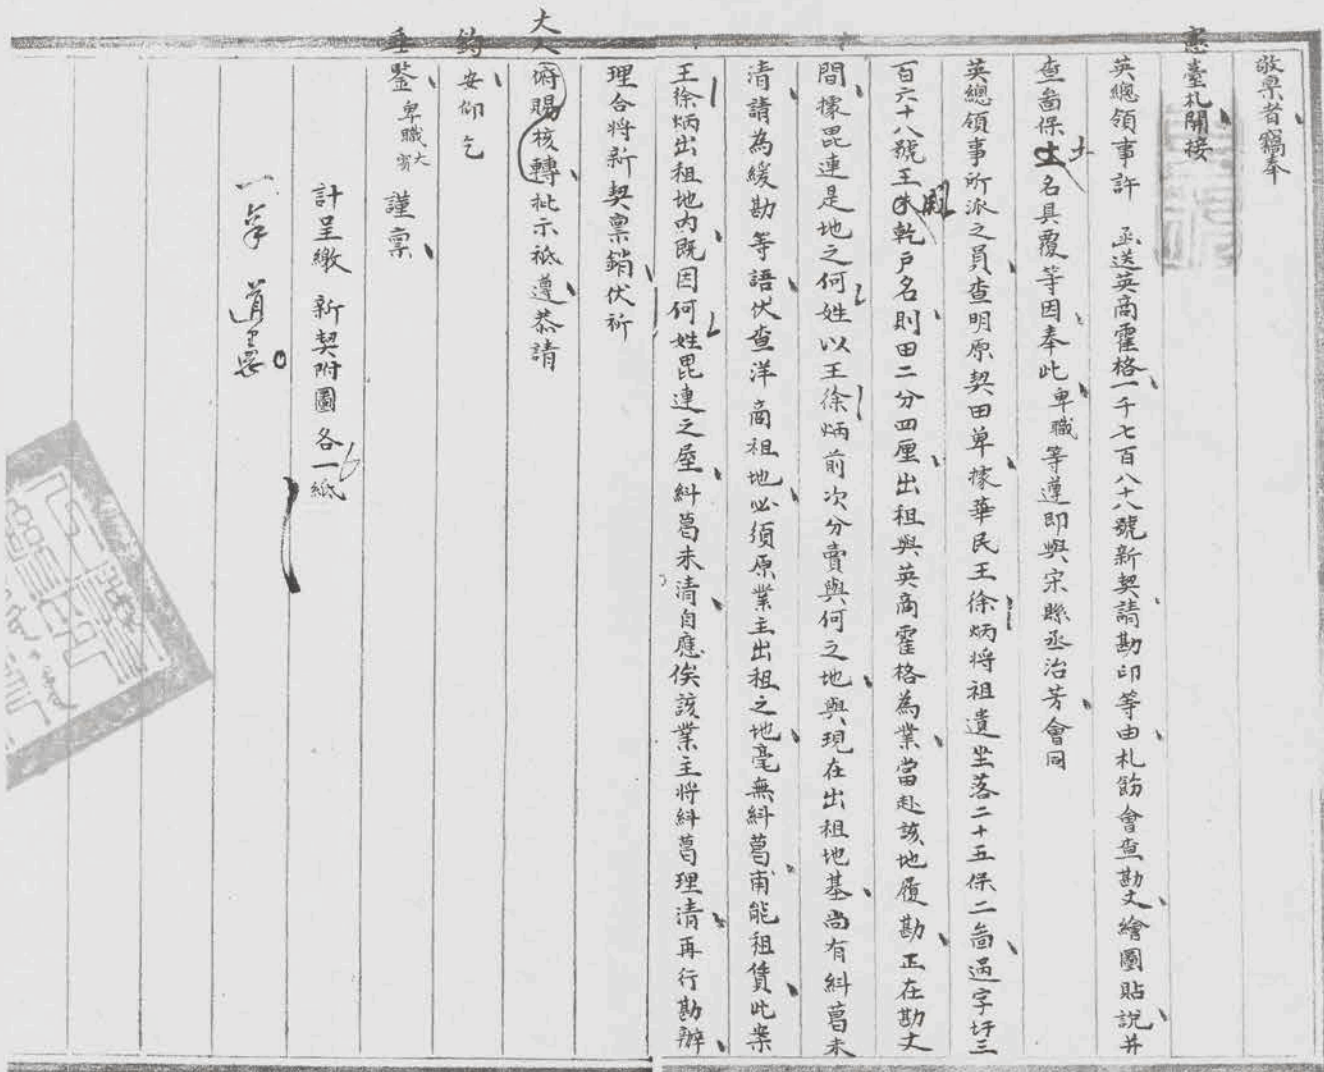 敬稟者竊奉
憲臺札開接
英總領事許 函送英商霍格一千七百八十八號新契請勘印等由札飭會查勘丈繪圖貼說并
查啚保土名具覆等因奉此卑職等遵即與宋縣丞治芳會同
英總領事所派之員查明原契田單據華民王徐炳將祖遺坐落二十五保二啚過字圩三
百六十八號王乾戶名則田二分四厘出租與英商霍格為業當赴該地履勘正在勘丈
間據毘連是地之何姓以王徐炳前次分賣與何之地與現在出租地基尚有糾葛未
清請為緩勘等語伏查洋商租地必須原業主出租之地毫無糾葛甫能租賃此案
王徐炳出租地內既因何姓毘連之屋糾葛未清自應俟該業主將糾葛理清再行勘辦
理合將新契稟銷伏祈
大人俯賜核轉批示祗遵恭請
鈞安仰乞
垂鑒卑職大賓謹稟
計呈繳 新契附圖各一紙